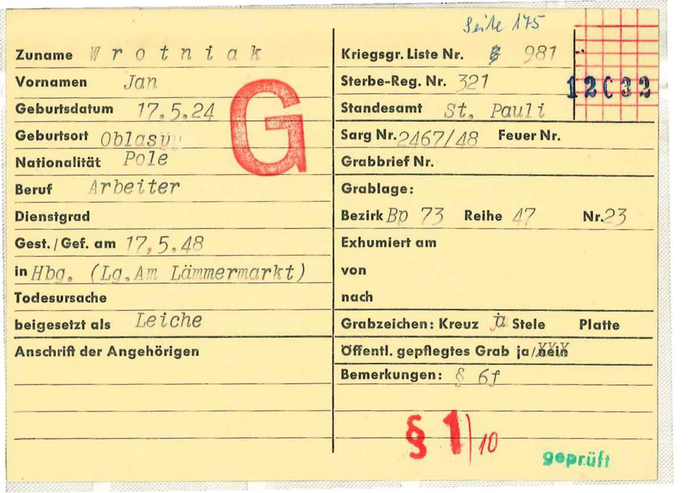 Seite 175
Zuname Wrotniak
Vornamen Jan
Geburtsdatum 17.5.24
Geburtsort Oblasy
Nationalität Pole
Beruf Arbeiter
Dienstgrad
Gest./Gef. am 17.5.48
in Hbg. (Lg.Am Lämmermarkt)
Todesursache
beigesetzt als Leiche
Anschrift der Angehörigen
G
Kriegsgr. Liste Nr. 981
12C32
Sterbe-Reg. Nr. 321
Standesamt St. Pauli
Sarg Nr. 2467/48 Feuer Nr.
Grabbrief Nr.
Grablage:
Bezirk Bp 73 Reihe 47 Nr. 23
Exhumiert am
von
nach
Grabzeichen: Kreuz ja Stele Platte
Öffentl. gepflegtes Grab ja/nein
Bemerkungen: § 6f
§ 1/10
geprüft